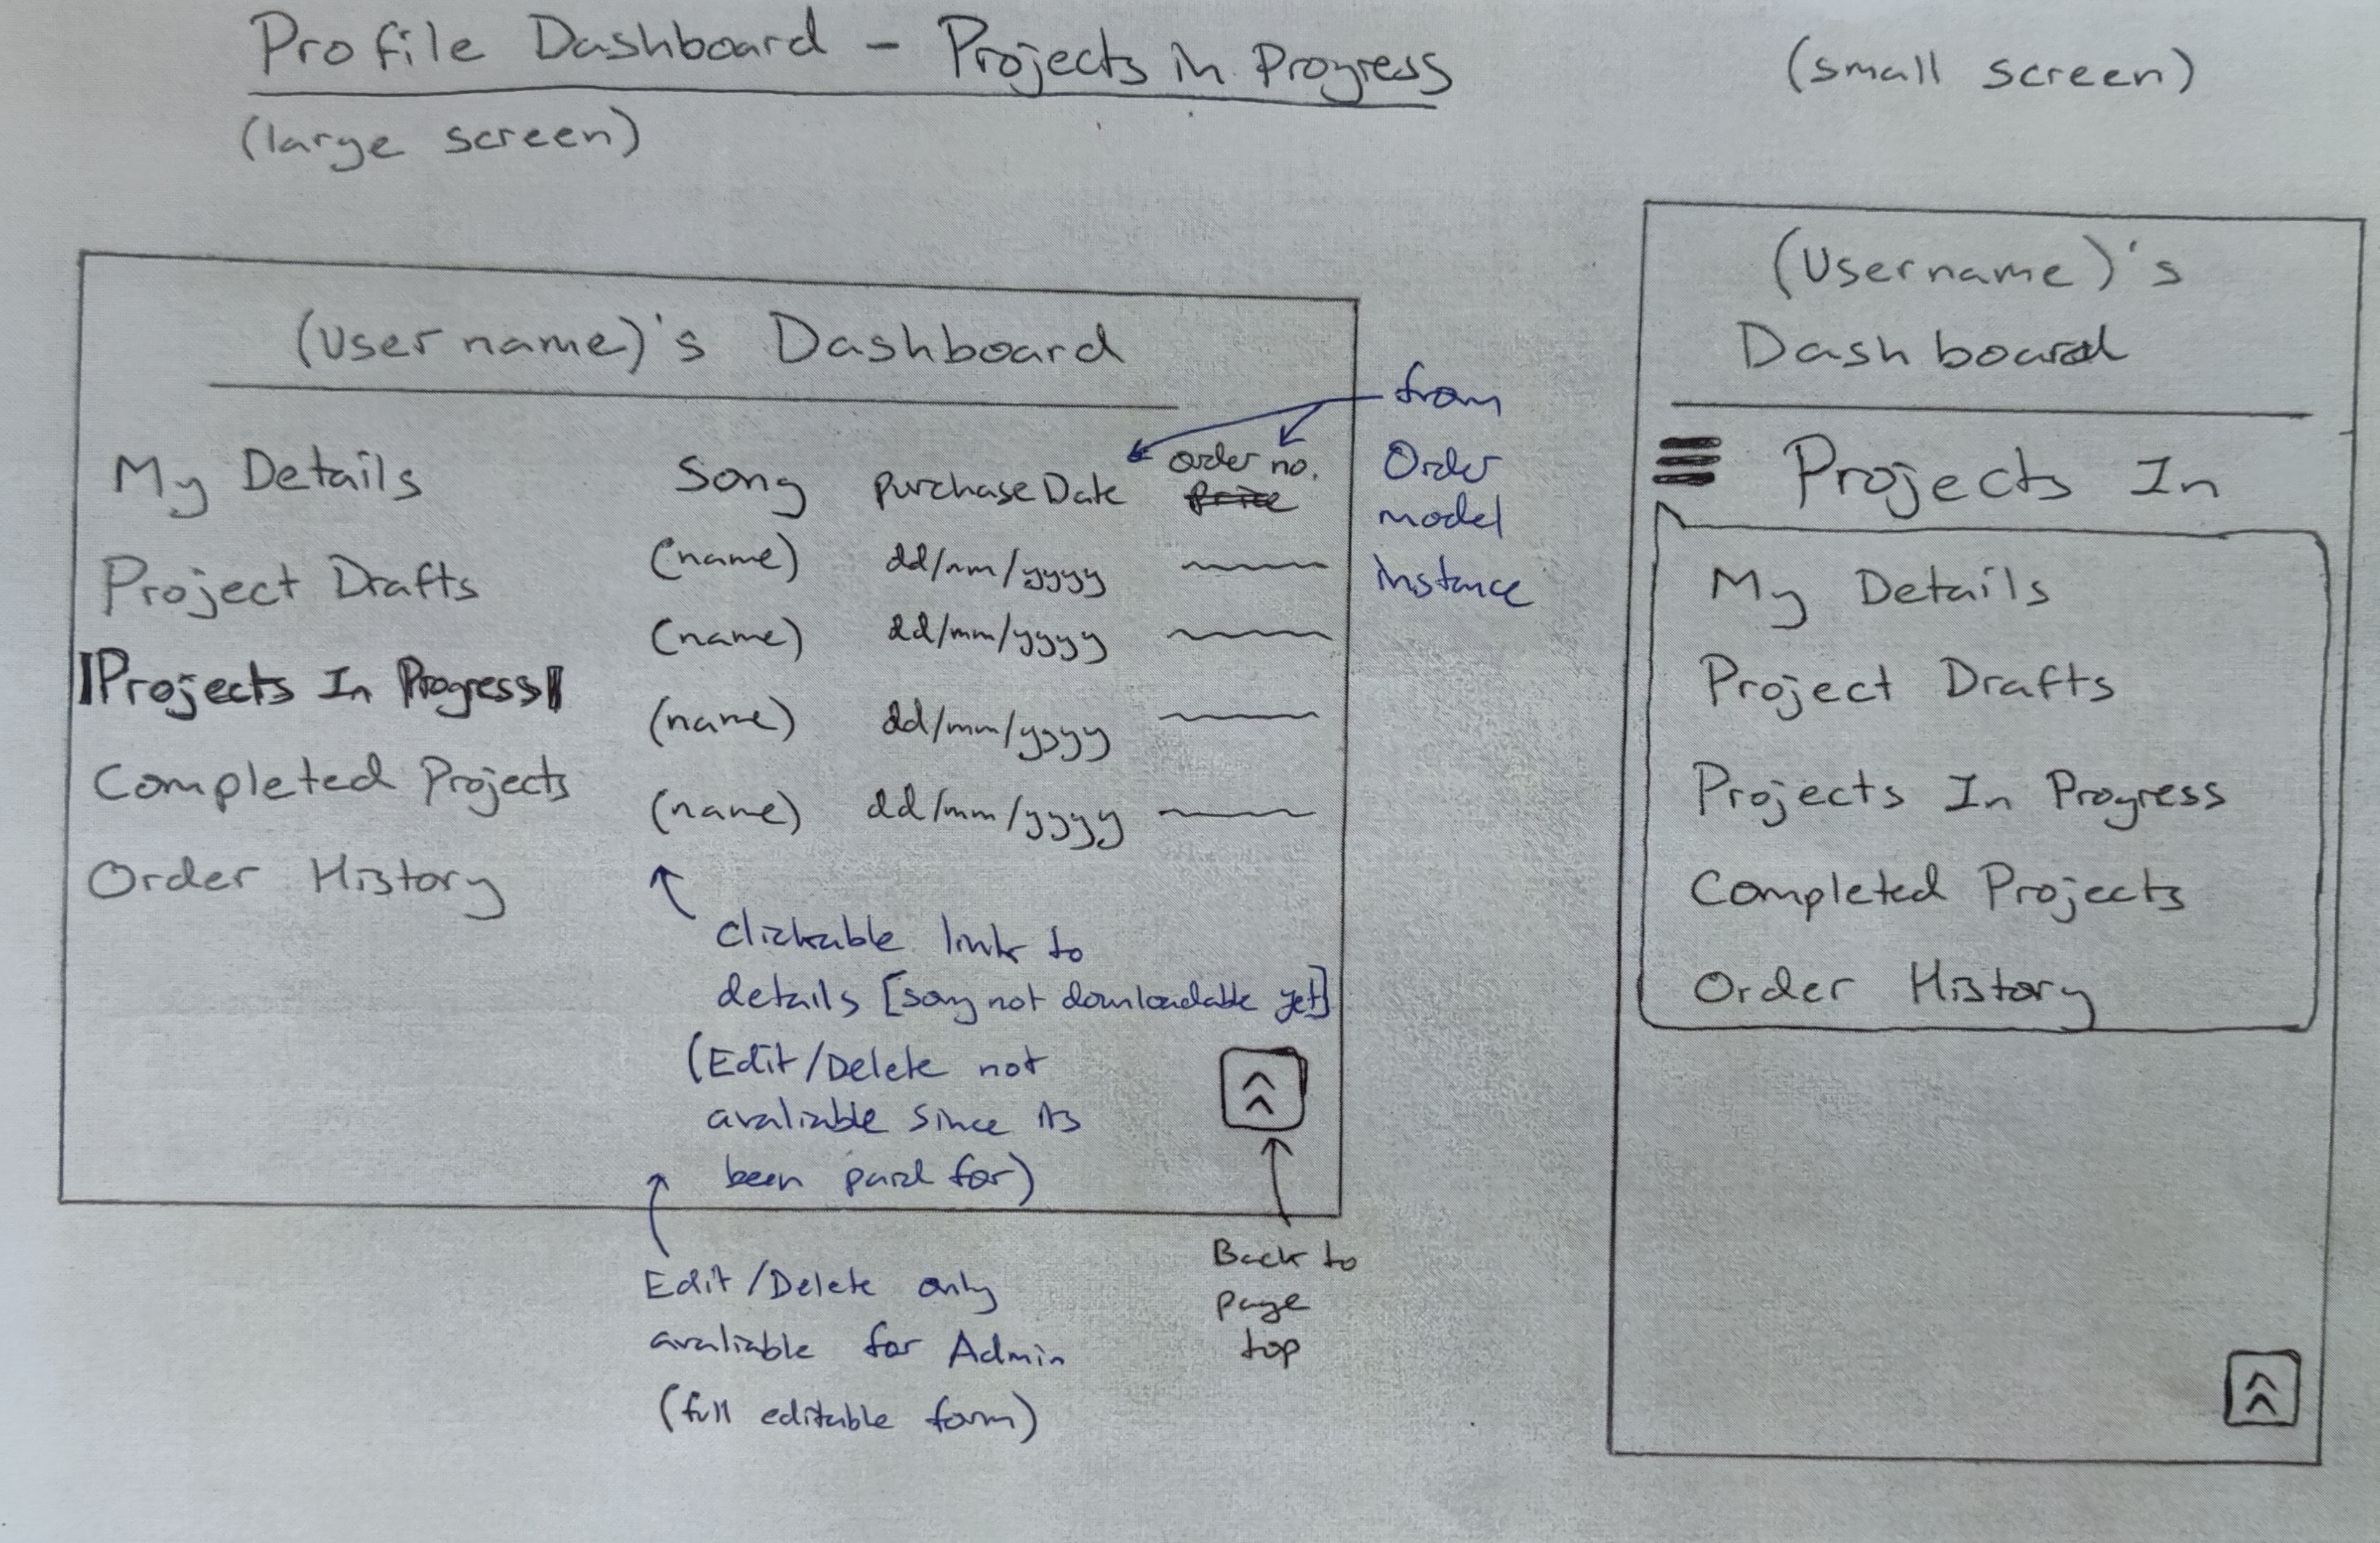 Profile Dashboard - Projects in Progress
(large screen)
(Username)'s Dashboard
My Details
Project Drafts
Projects In Progress
Completed Projects
Order History
Song Purchase Date order no.
Price
(name) dd/mm/yyyy
(name) dd/mm/yyyy
(name) dd/mm/yyyy
(name) dd/mm/yyyy
from
Order
model
instance
clickable link to
details [song not downloadable yet]
(Edit/Delete not
avaliable since its
been paid for)
Edit/Delete only
avaliable for Admin
(full editable form)
Back to
page
top
(small screen)
(Username)'s
Dashboard
Projects In
My Details
Project Drafts
Projects In Progress
Completed Projects
Order History